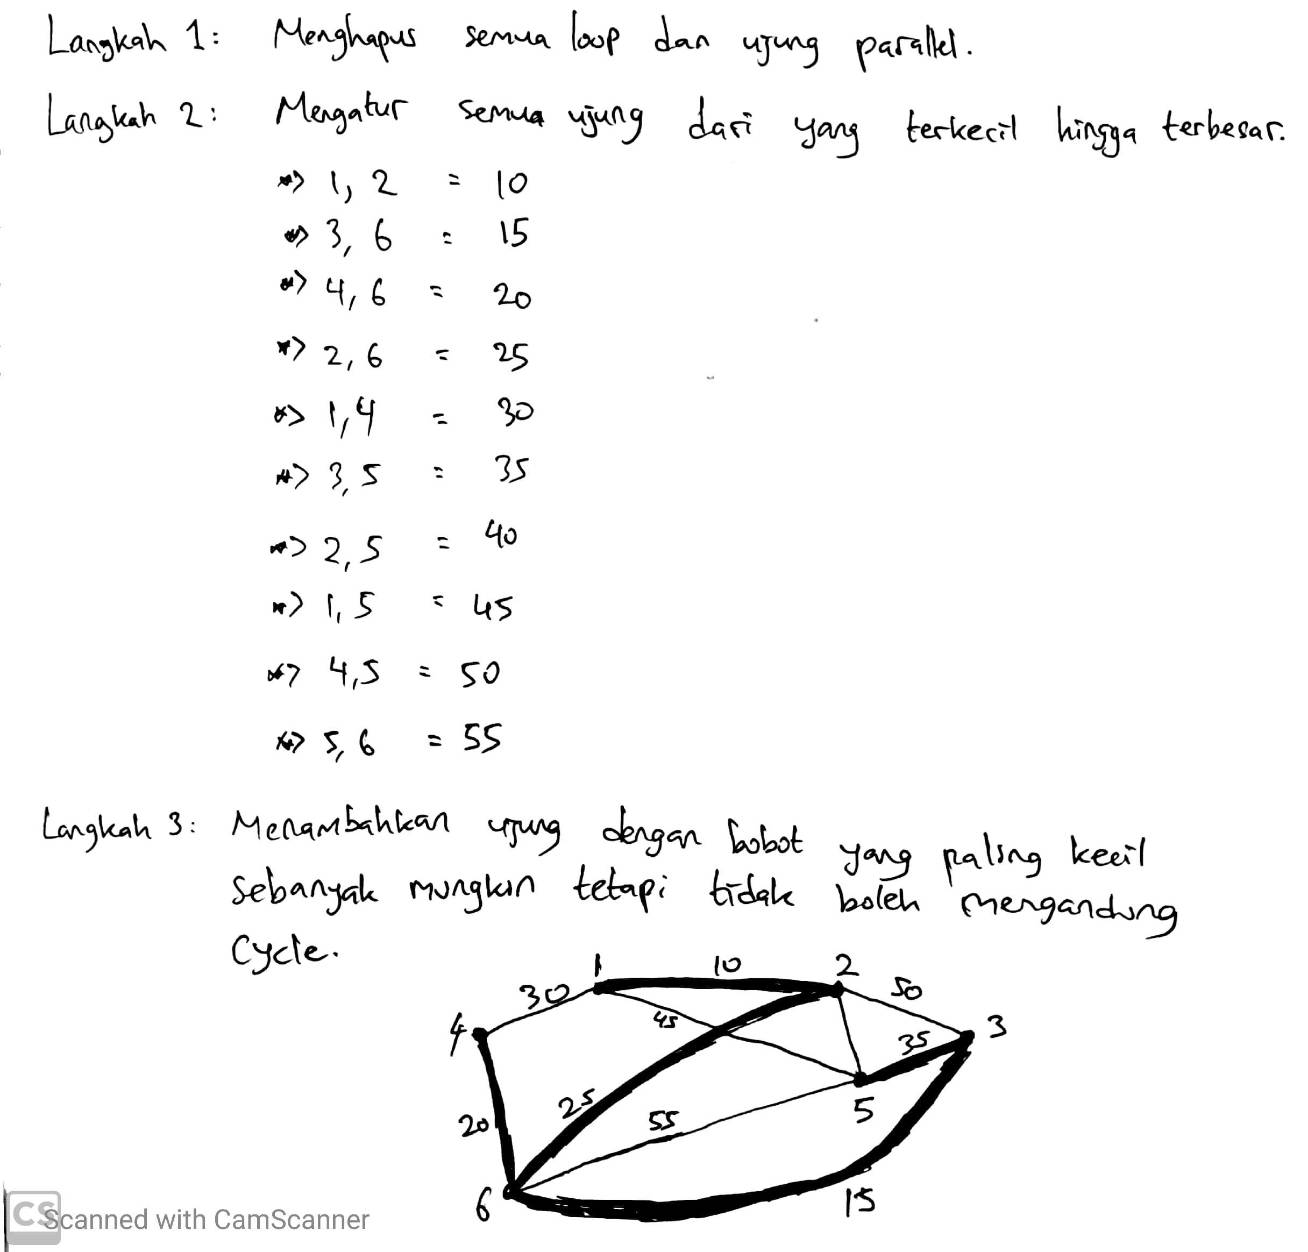 Langkah 1: Menghapus semua loop dan ujung parallel.
Langkah 2: Mengatur semua ujung dari yang terkecil hingga terbesar.
=> 1, 2 = 10
=> 3, 6 = 15
=> 4, 6 = 20
=> 2, 6 = 25
=> 1, 4 = 30
=> 3, 5 = 35
=> 2, 5 = 40
=> 1, 5 = 45
=> 4, 5 = 50
=> 5, 6 = 55
Langkah 3: Menambahkan ujung dengan bobot yang paling kecil
sebanyak mungkin tetapi tidak boleh mengandung
Cycle.
1 10 2
30 50
4 45 35 3
25 5
20 55
6 15
CS Scanned with CamScanner